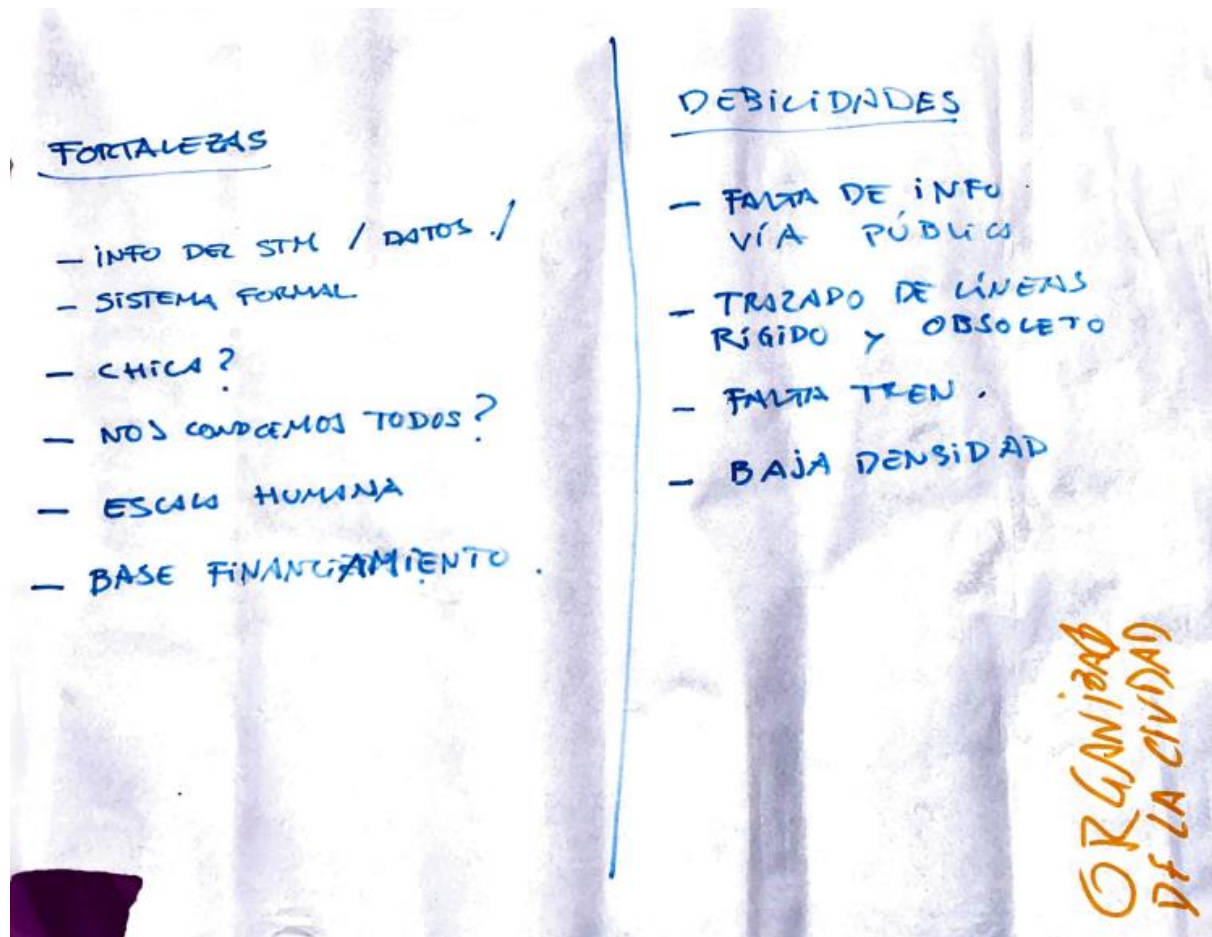 FORTALEZAS
- INFO DEL STM / DATOS ./
- SISTEMA FORMAL
- CHICA?
- NOS CONOCEMOS TODOS?
- ESCALA HUMANA
- BASE FINANCIAMIENTO.
DEBILIDADES
- FALTA DE INFO.
VÍA PÚBLICA
- TRAZADO DE LÍNEAS
RÍGIDO Y OBSOLETO
- FALTA TREN.
- BAJA DENSIDAD
DE LA CIUDAD